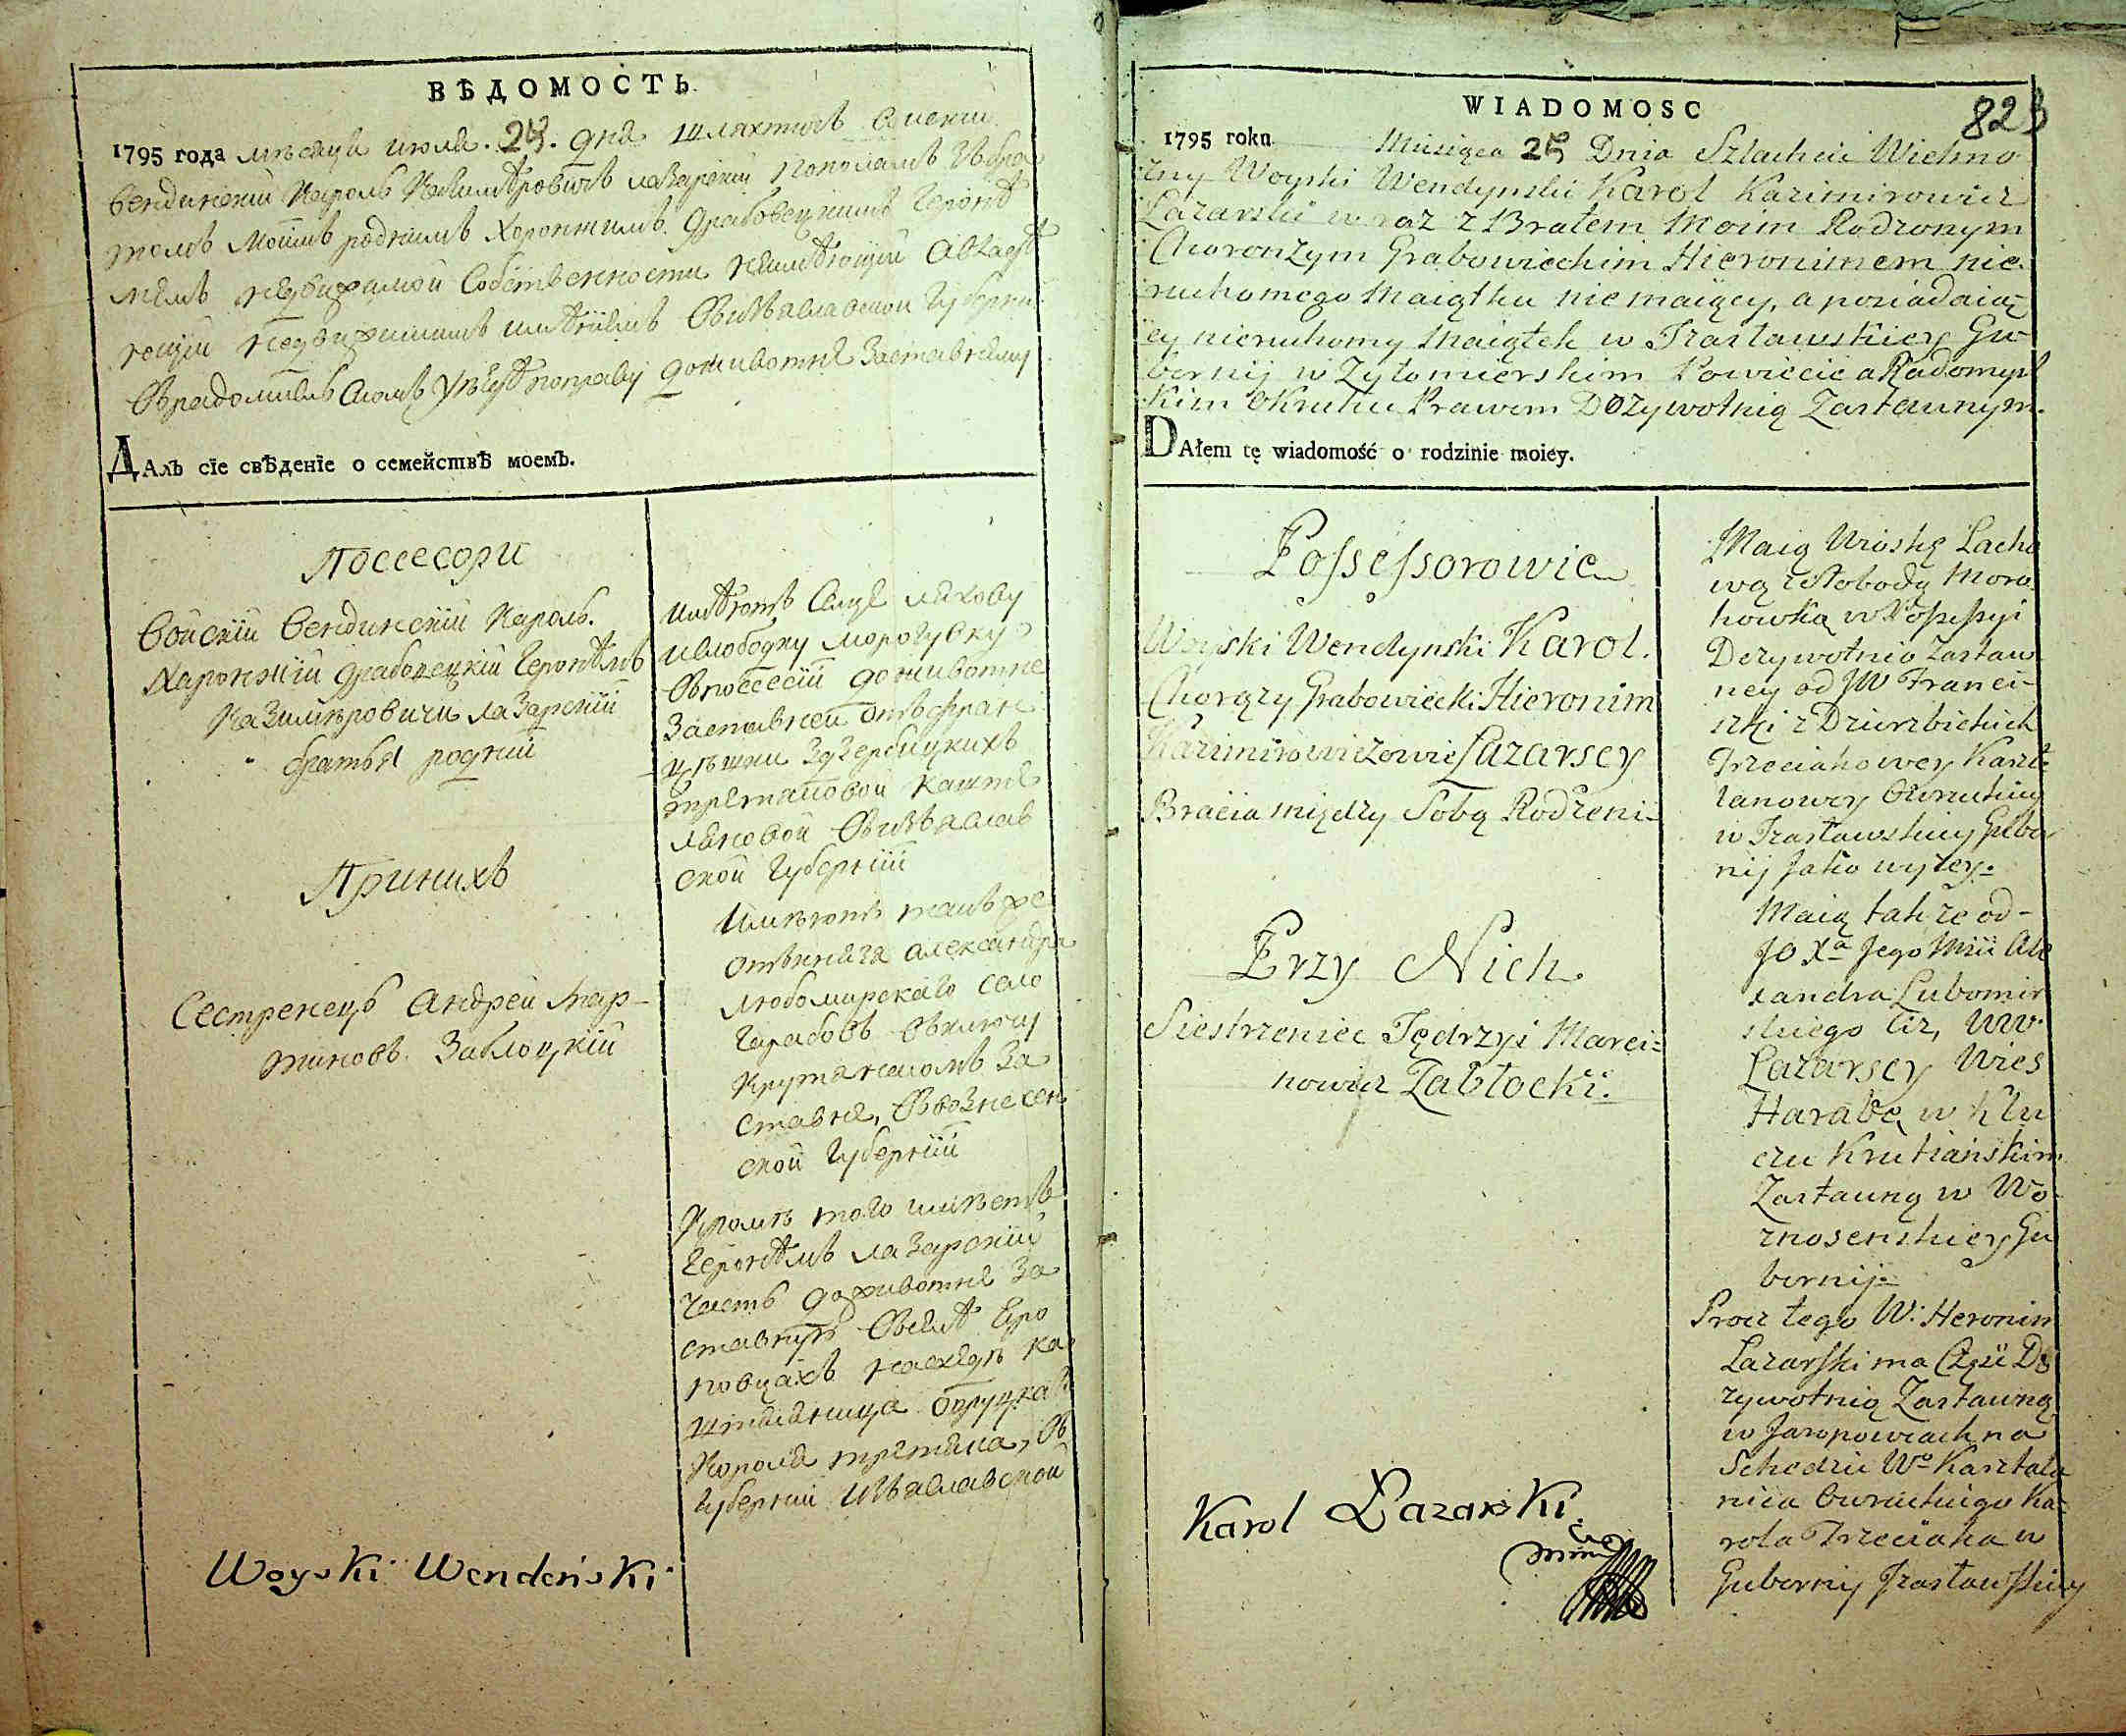 ВѢДОМОСТЬ
1795 года мѣсяца июля 25 дня шляхтичъ
венденскій Кароль Казимѣровичъ лазарскій
моимъ роднимъ Хоронжимъ Грабовецкимъ Героне
недвижамой Собственности неимѣющій
недвижимимъ имѣніемъ
ДАлъ сїе свѣденїе о семействѣ моемъ.
Поссесори
Войскій Вендинскій Кароль.
Харонжій Грабовецкій Геронѣмъ
Казимѣровичи лазарскій
братья родніи
При нихъ
Сестренецъ Андрей Мар-
тиновъ Заблоцкій
имѣютъ Селце ляхову
ислободку морогувку
Впоссесіи доживотне
Заставней отъ фран
цѣшки Здзербицкихъ
третяковой кашта
ляновой Визяслав
ской Губерніи
Имѣютъ такъ же
отъ князя александра
любомирскаго село
Гарабовъ Включу
Крутянскомъ За
ставня, Ввознесен
ской Губерніи
Кромѣ того имѣетъ
Геронѣмъ лазарскій
часть доживотня За
ставную Вселѣ Яро
повцахъ насхедѣ ка
штеляница овруцка
Кароля третяка, в
Губерніи Изяславской
Woyski Wendeński
WIADOMOSC
823
1795 roku Miesięca 25 Dnia Szlachcic Wielmo
żny Woyski Wendynski Karol Kazimirowicz
Łazarski w raz z Bratem Moim Rodzonym
Choronżym Grabowieckim Hieronimem nie
ruchomego Maiątku nie maiący, a posiadaią
cy nieruchomy Maiątek w Izasławskiey Gu
bernij w Zytomierskim Powiecie a Radomysl
skim Okruhu Prawem Dozywotnią Zastawnym.
DAłem tę wiadomość o rodzinie moiey.
Possessorowie
Woyski Wendynski Karol.
Chorąży Grabowiecki Hieronim
Kazimirowiczowie Łazarscy
Bracia między Sobą Rodzeni
Przy Nich.
Siestrzeniec Jędrzyi Marci=
nowicz Zabłocki.
Maią Wioskę Lacho
wą z Słobodą Moro
howką w Possessyi
Dozywotnio Zastaw
ney od JW Franci-
szki z Dzierzbickich
Trzeciakowey Kaszt
lanowey Owruckiey
w Izasławskiey Gube
nij Jako wyzey.
Maią takze od-
JO Xa Jego Mci Ale
xandra Lubomir
skiego Ciz, WW.
Łazarscy Wies
Harabę w Klu
czu Krutianskim
Zastawną w Wo
znosenskiey Gu
bernij
Procz tego W: Heronim
Łazarski ma Częsc Do
zywotnią Zastawną
w Jaropowcach na
Schedzie Wo Kasztala
nica Owruckiego Ka-
rola Trzeciaka w
Gubernij Izasławskiey
Karol Łazarski